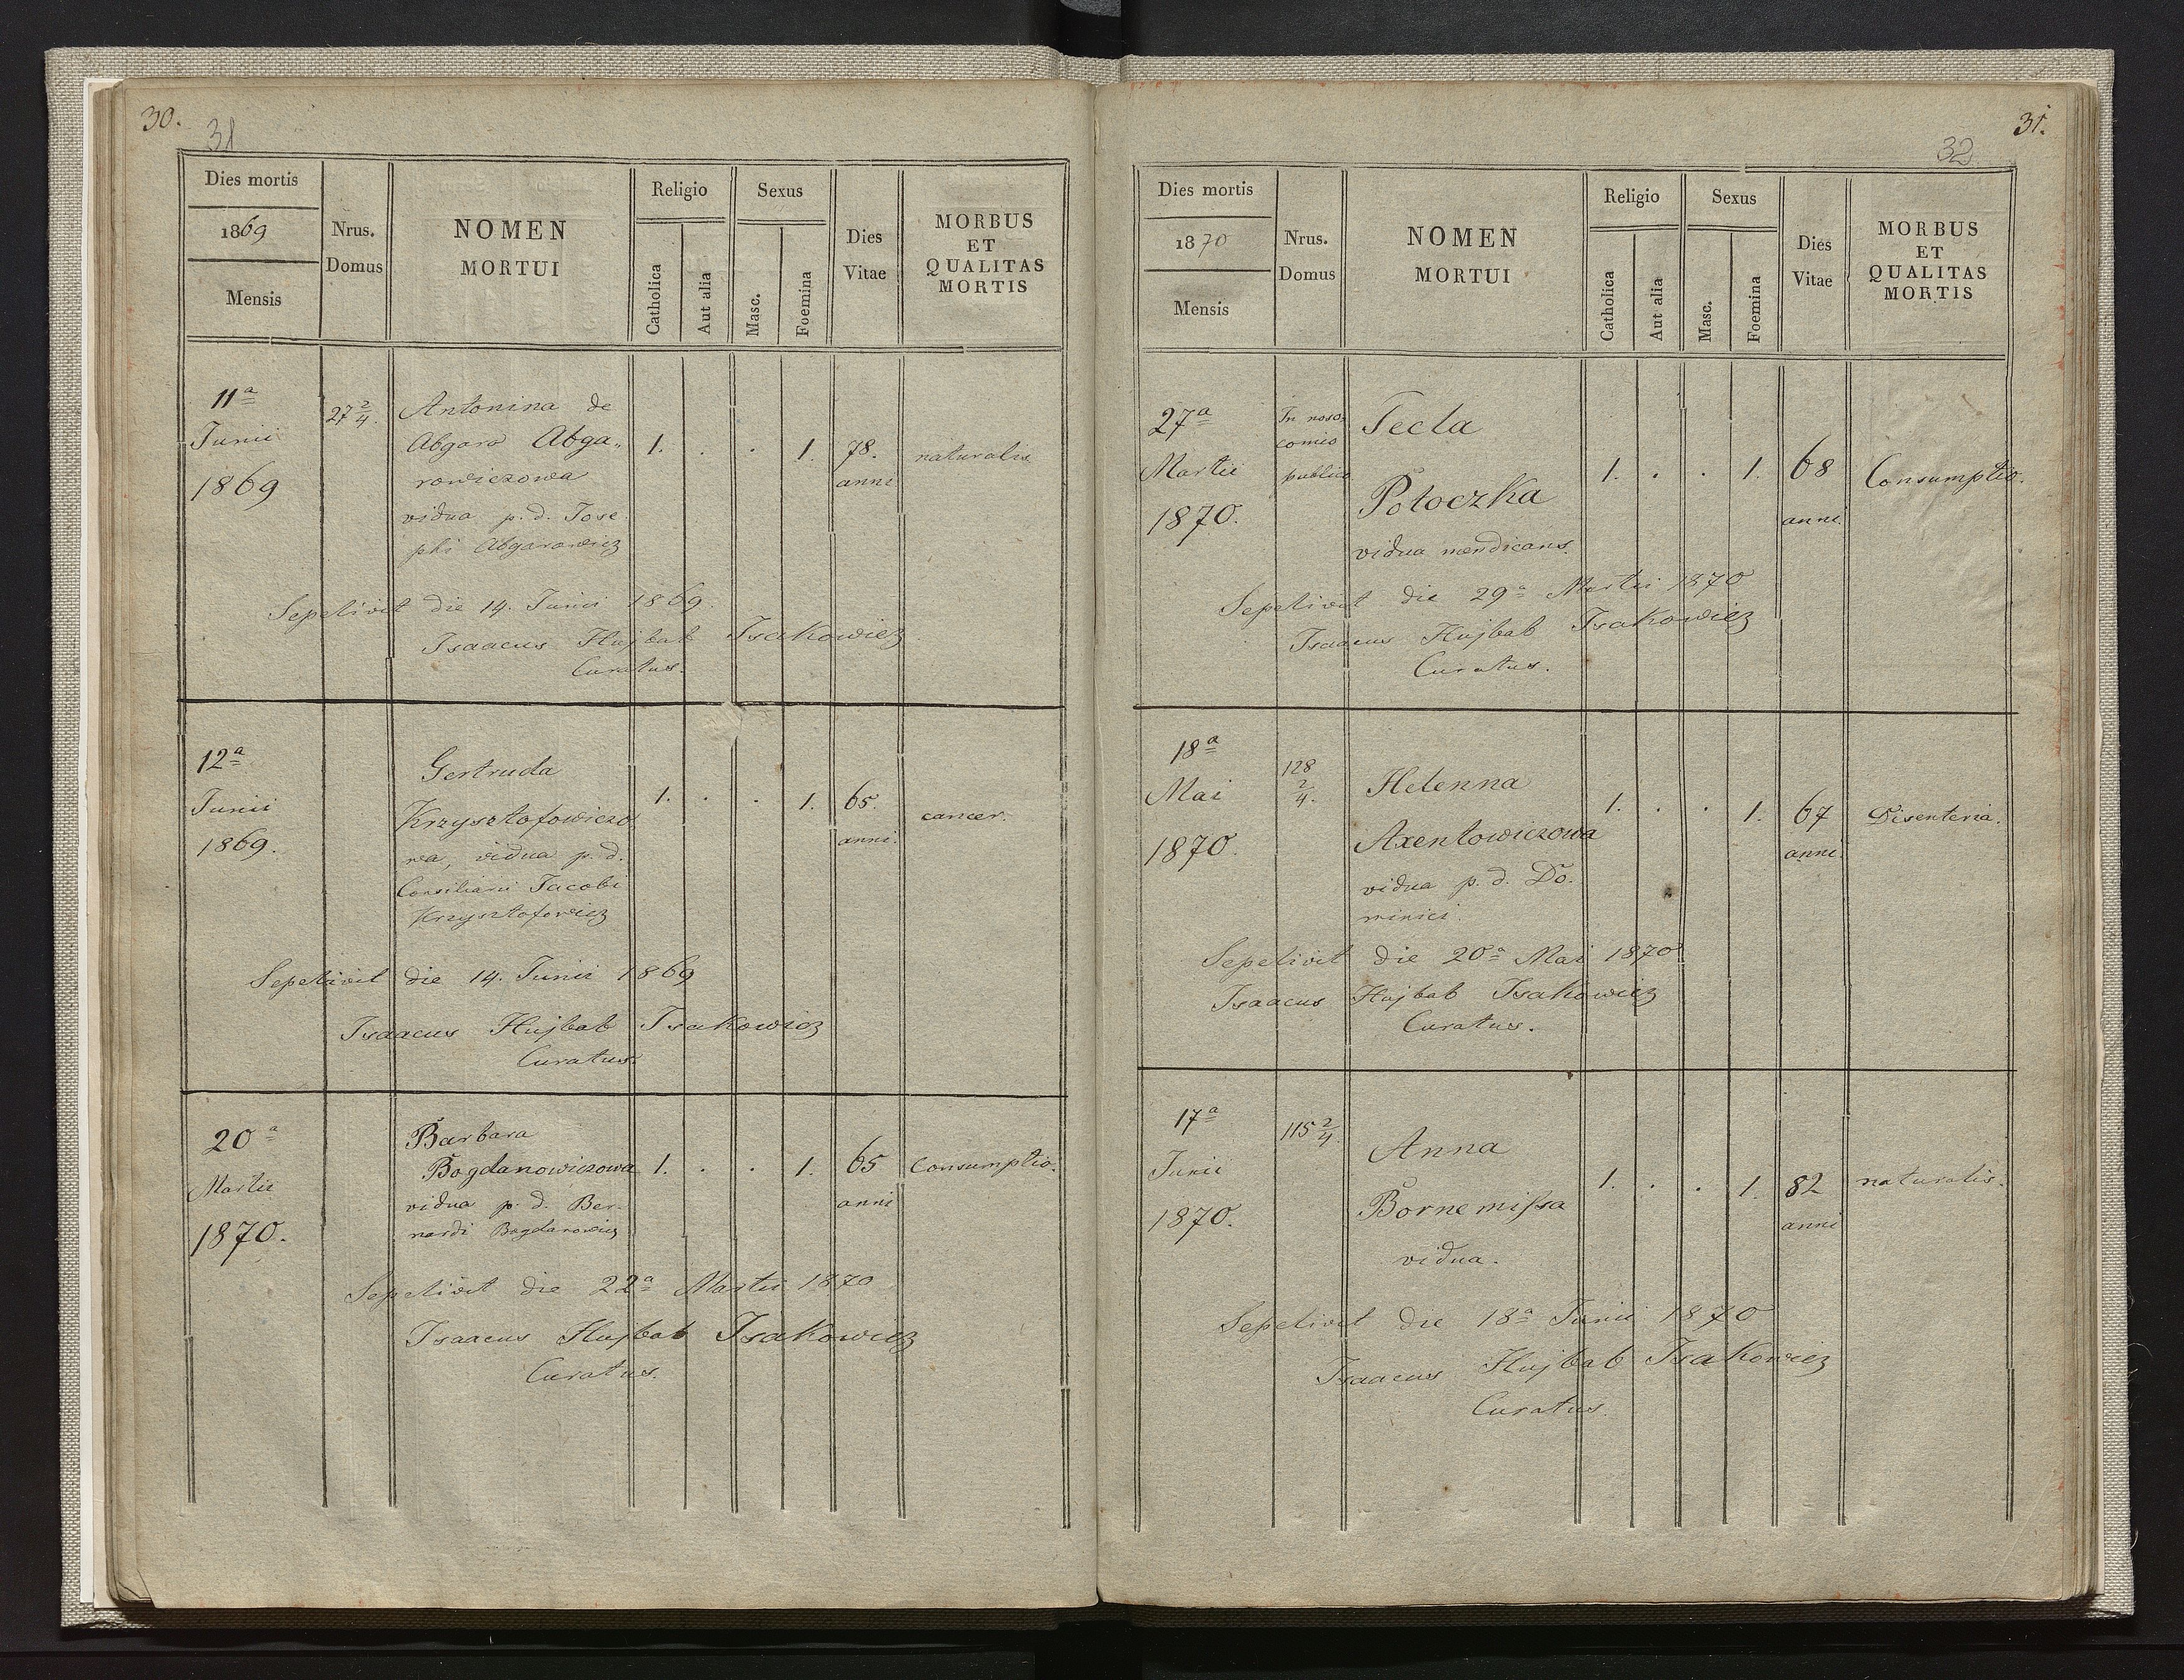 30.
31
Dies mortis
1869
Mensis
Nrus.
Domus
NOMEN
MORTUI
Religio
Catholica
Aut alia
Sexus
Masc.
Foemina
Dies
Vitae
MORBUS
ET
QUALITAS
MORTIS
11ª
Junii
1869
27 2/4.
Antonina de
Abgaro Abga„
rowiczowa
vidua p. d. Jose
phi Abgarowicz
1. . . 1. 78.
anni
naturalis.
Sepelivit die 14. Junii 1869
Isaacus Hujbab Isakowicz
Curatus.
12ª
Junii
1869.
Gertruda
Krzysztofowiczo
wa, vidua p. d.
Consiliarii Jacobi
Krzysztofowicz
1. . . 1. 65.
anni.
cancer.
Sepelivit die 14. Junii 1869
Isaacus Hujbab Isakowicz
Curatus.
20ª
Martii
1870.
Barbara
Bogdanowiczowa
vidua p. d. Ber-
nardi Bogdanowicz
1. . . 1. 65
anni
Consumptio.
Sepelivit die 22ª Martii 1870
Isaacus Hujbab Isakowicz
Curatus.
31.
32
Dies mortis
1870
Mensis
Nrus.
Domus
NOMEN
MORTUI
Religio
Catholica
Aut alia
Sexus
Masc.
Foemina
Dies
Vitae
MORBUS
ET
QUALITAS
MORTIS
27ª
Martii
1870.
In noso-
comio
publico
Tecla
Potoczka
vidua mendicans.
1. . . 1. 68
anni.
Consumptio.
Sepelivit die 29ª Martii 1870
Isaacus Hujbab Isakowicz
Curatus.
18ª
Mai
1870.
128
2/4.
Helenna
Axentowiczowa
vidua p. d. Do-
minici.
1. . . 1. 67
anni.
Disenteria.
Sepelivit die 20ª Mai 1870
Isaacus Hujbab Isakowicz
Curatus.
17ª
Junii
1870.
115 2/4.
Anna
Bornemiſsa
vidua.
1. . . 1. 82
anni
naturalis.
Sepelivit die 18ª Junii 1870
Isaacus Hujbab Isakowicz
Curatus.